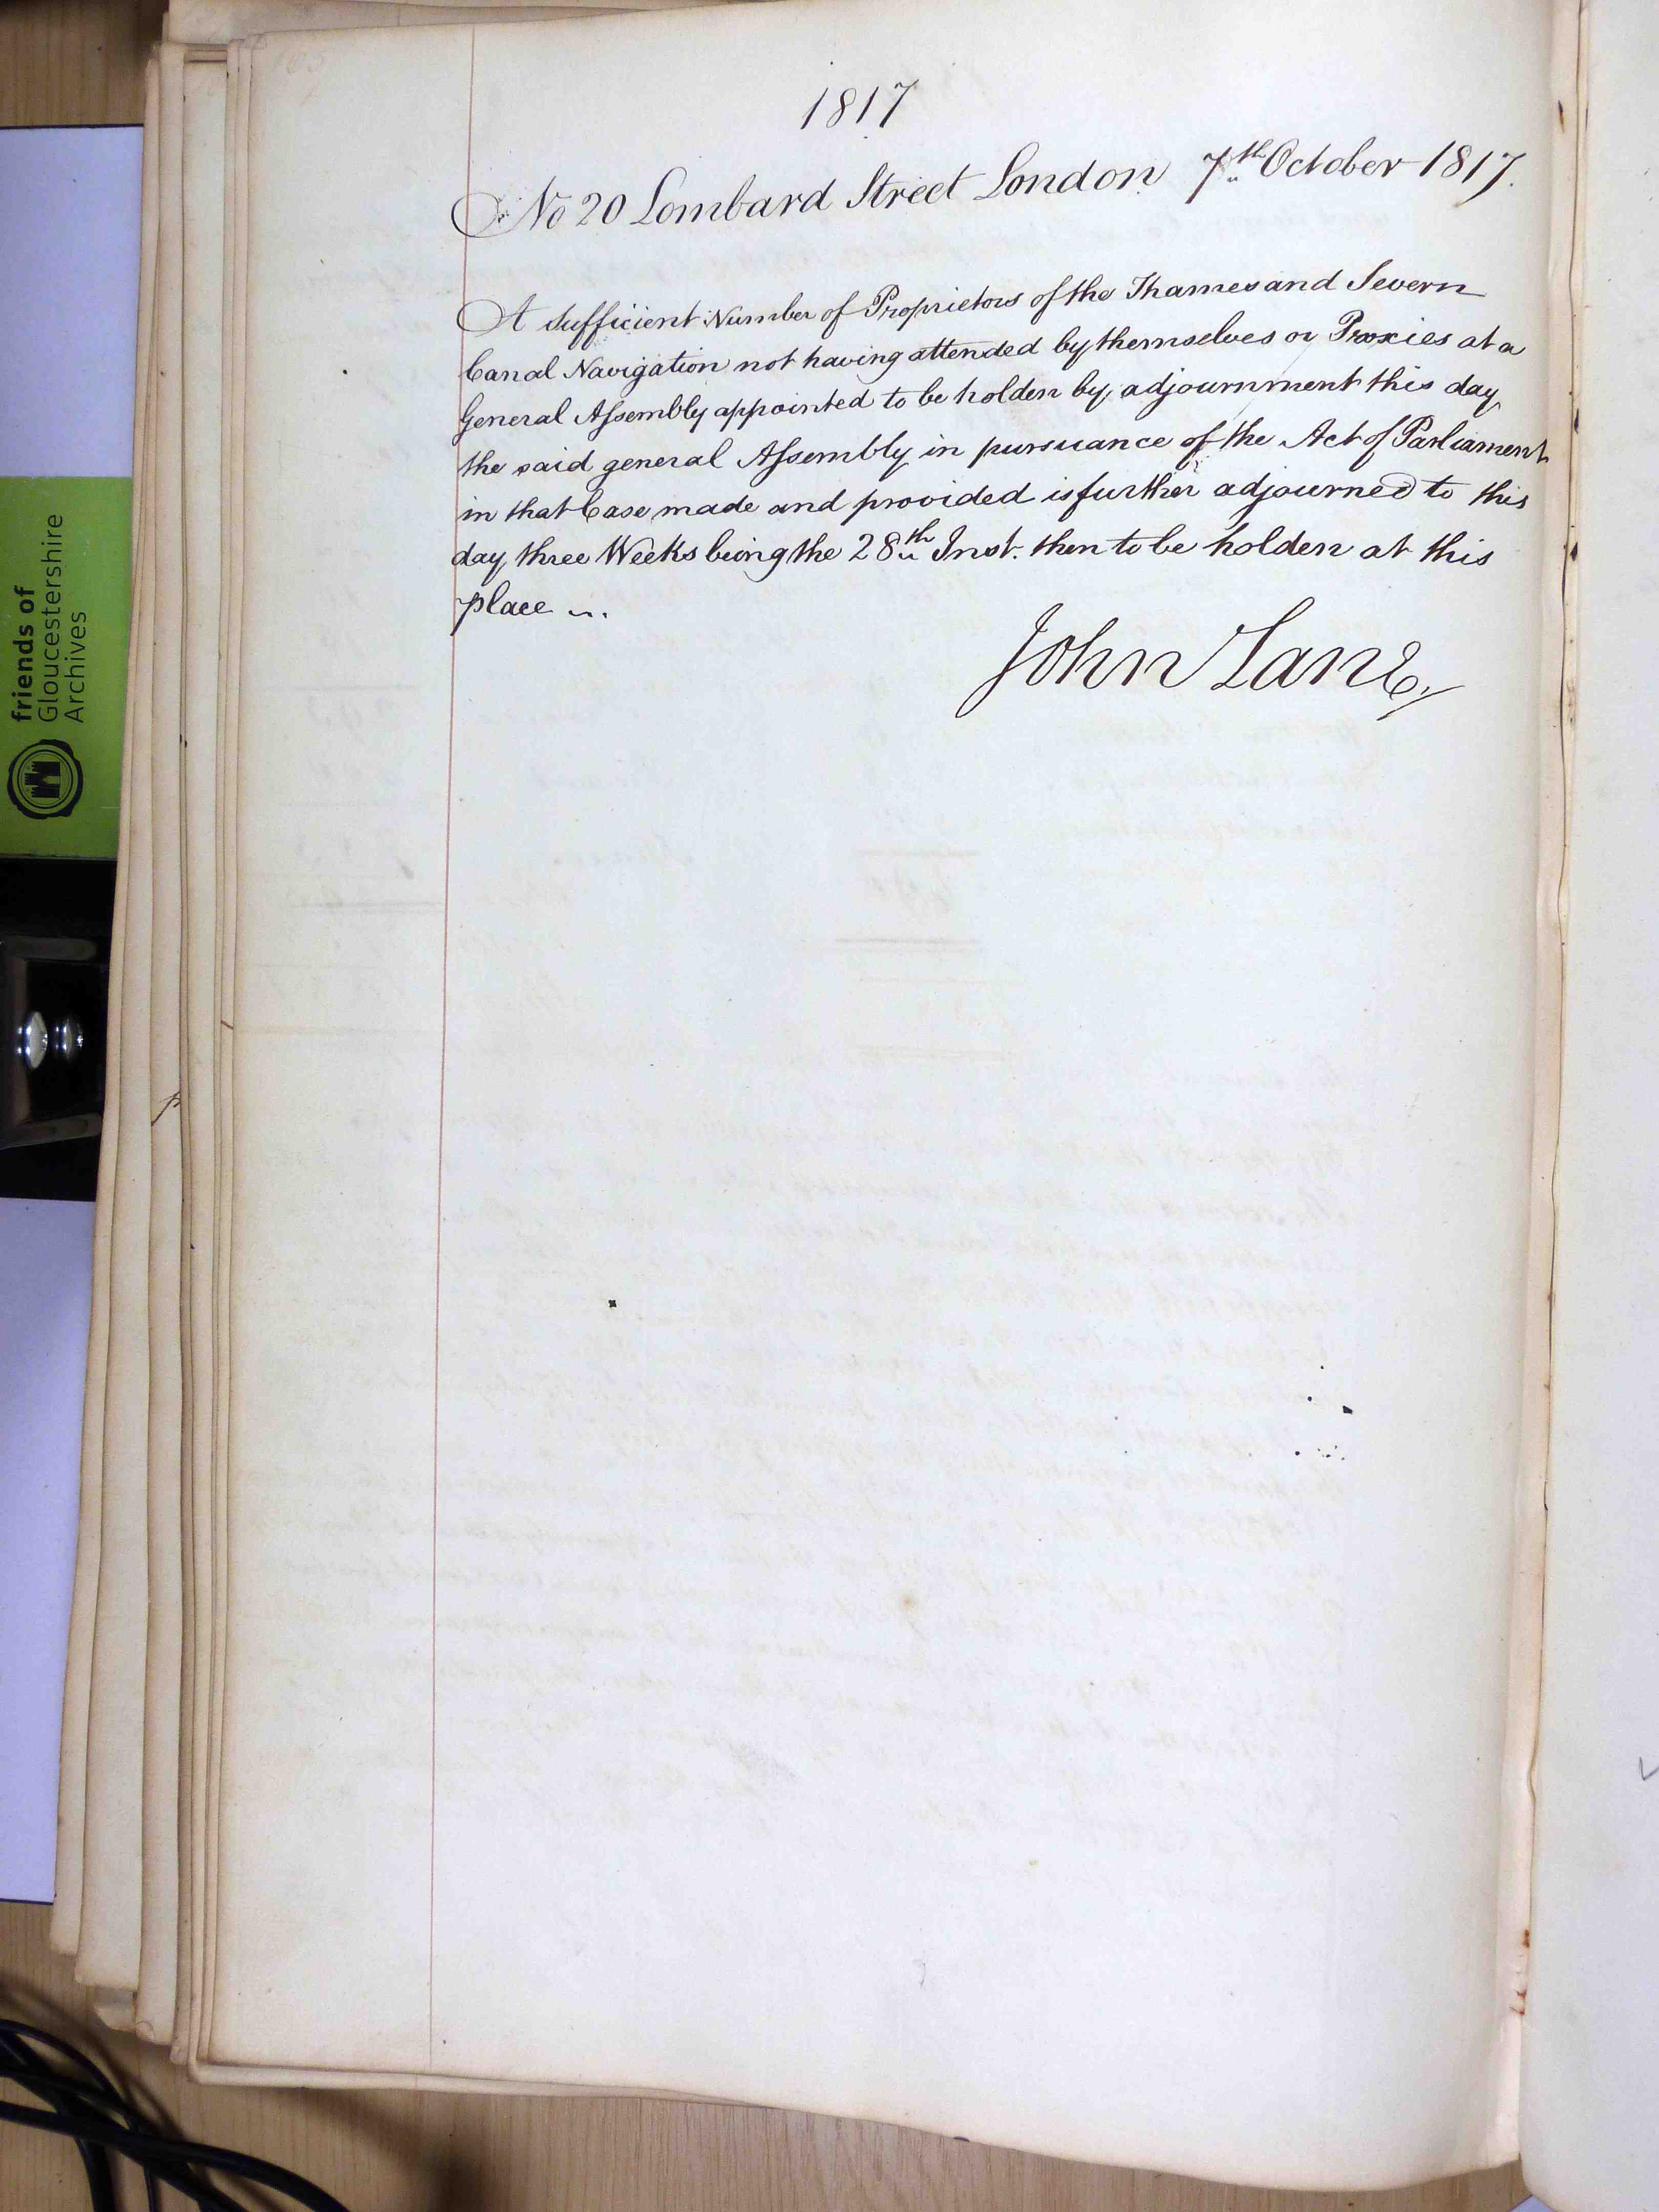 1817
No 20 Lombard Street London 7th October 1817.
A sufficient Number of Proprietors of the Thames and Severn
Canal Navigation not having attended by themselves or Proxies at a
General Assembly appointed to be holden by adjournment this day
the said general Assembly in pursuance of the Act of Parliament
in that Case made and provided is further adjourned to this
day three Weeks being the 28th Inst. then to be holden at this
place
John Lane
friends of
Gloucestershire
Archives